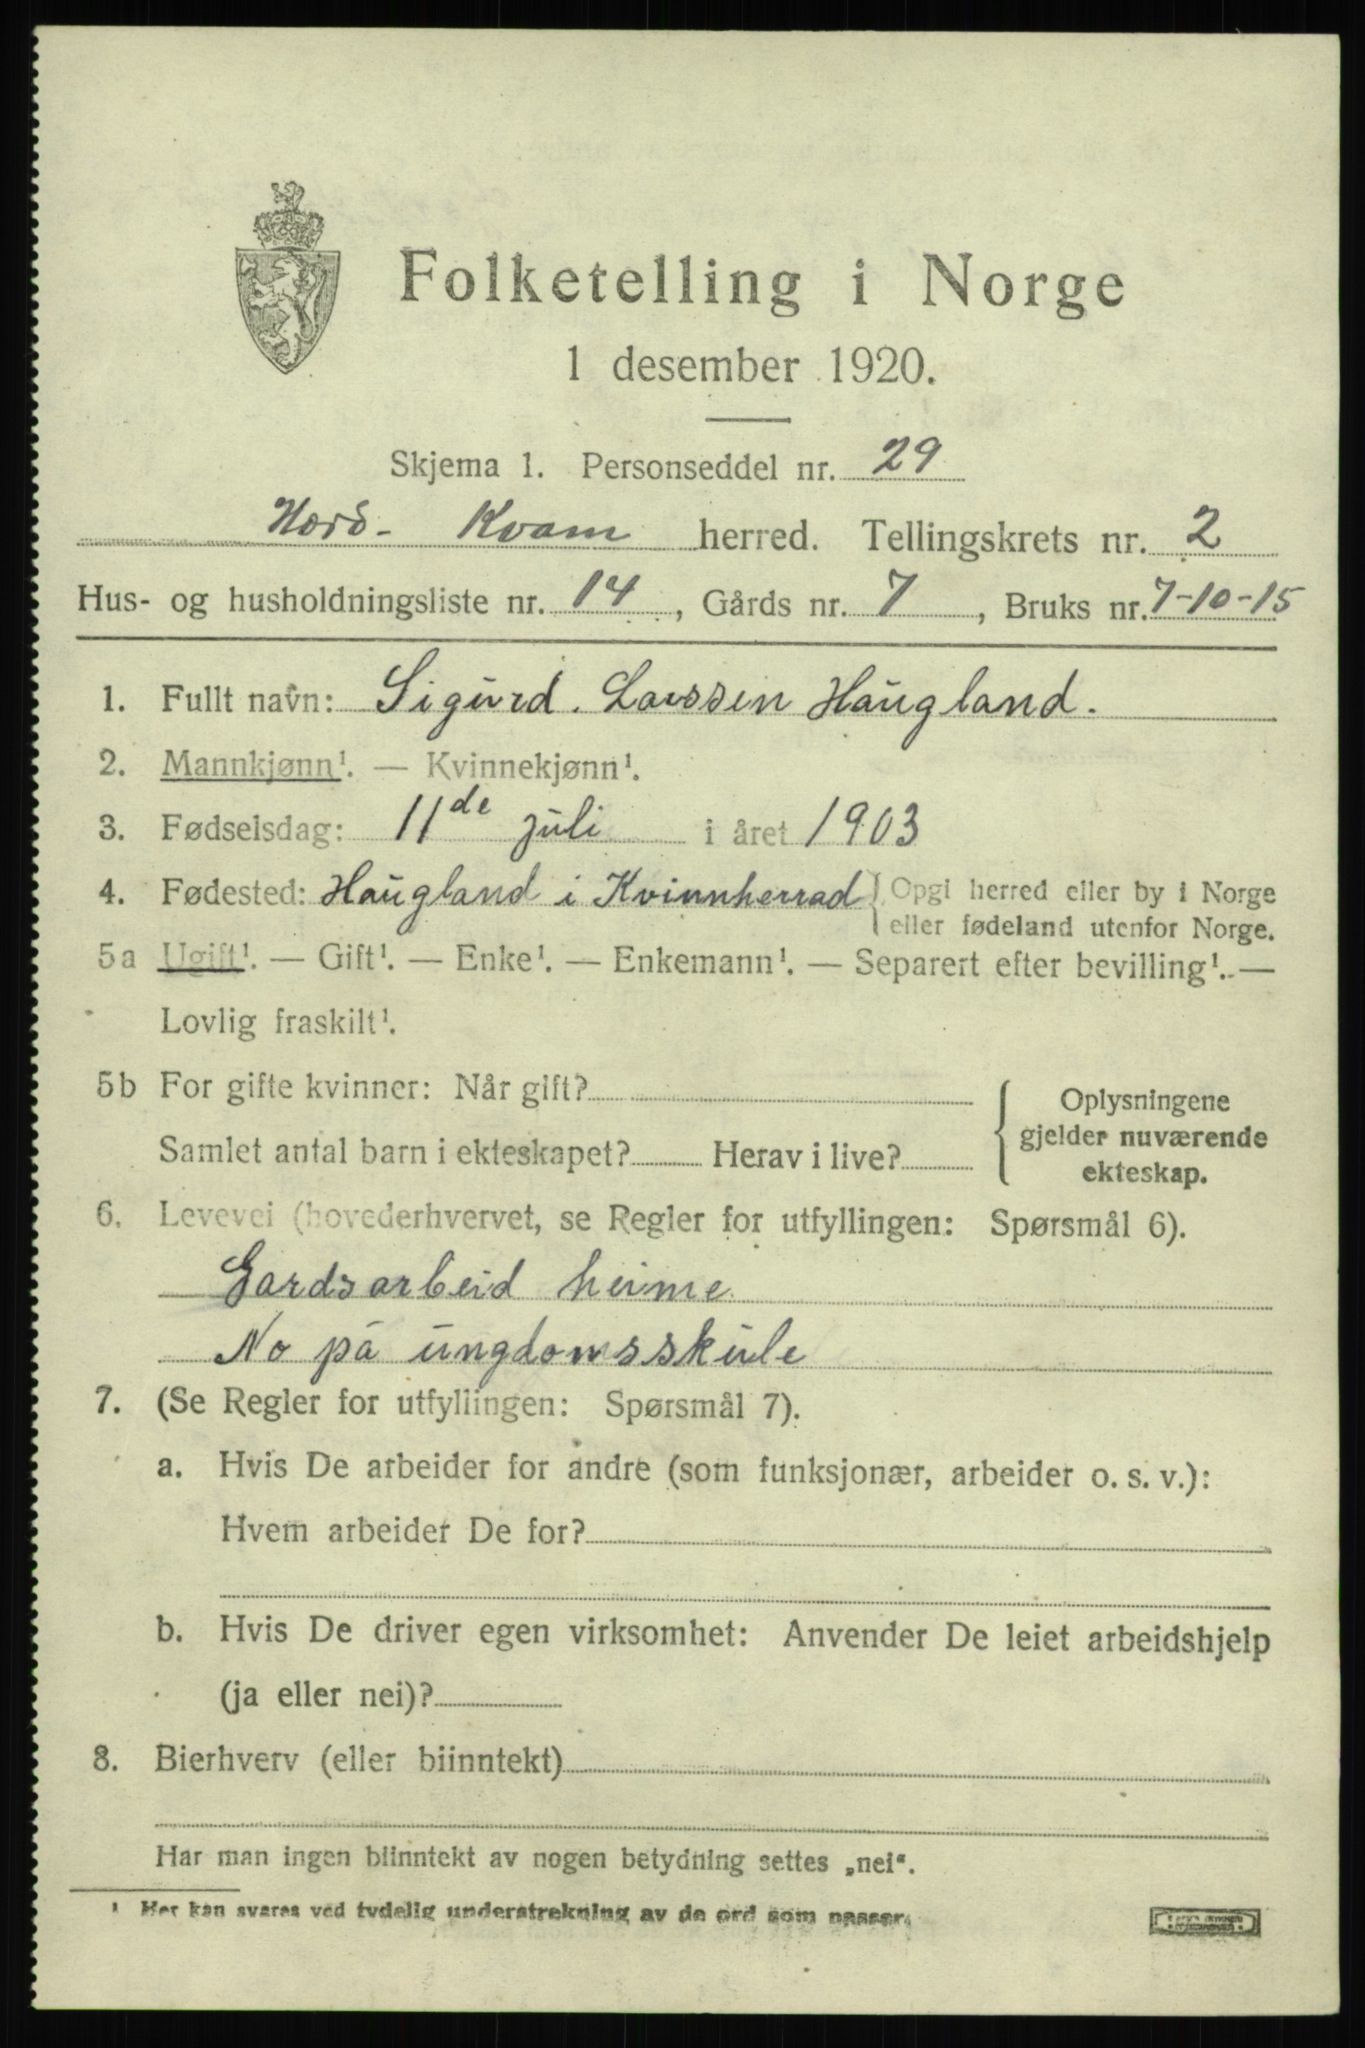 Folketelling i Norge
1 desember 1920.
Skjema 1. Personseddel nr. 29
Hord- Kvam herred. Tellingskrets nr. 2
Hus- og husholdningsliste nr. 14, Gårds nr. 7, Bruks nr. 7-10-15
1. Fullt navn: Sigurd. Larssen Haugland.
2. Mannkjønn¹. — Kvinnekjønn¹.
3. Fødselsdag: 11de juli i året 1903
4. Fødested: Haugland i Kvinnherrad { Opgi herred eller by i Norge
eller fødeland utenfor Norge.
5a Ugift¹. — Gift¹. — Enke¹. — Enkemann¹. — Separert efter bevilling¹. —
Lovlig fraskilt¹.
5b For gifte kvinner: Når gift?
Samlet antal barn i ekteskapet? Herav i live?
{ Oplysningene
gjelder nuværende
ekteskap.
6. Levevei (hovederhvervet, se Regler for utfyllingen: Spørsmål 6).
Gardsarbeid heime
No på ungdomsskule
7. (Se Regler for utfyllingen: Spørsmål 7).
a. Hvis De arbeider for andre (som funksjonær, arbeider o. s. v.):
Hvem arbeider De for?
b. Hvis De driver egen virksomhet: Anvender De leiet arbeidshjelp
(ja eller nei)?
8. Bierhverv (eller biinntekt)
Har man ingen biinntekt av nogen betydning settes „nei“.
¹ Her kan svares ved tydelig understrekning av de ord som passer.